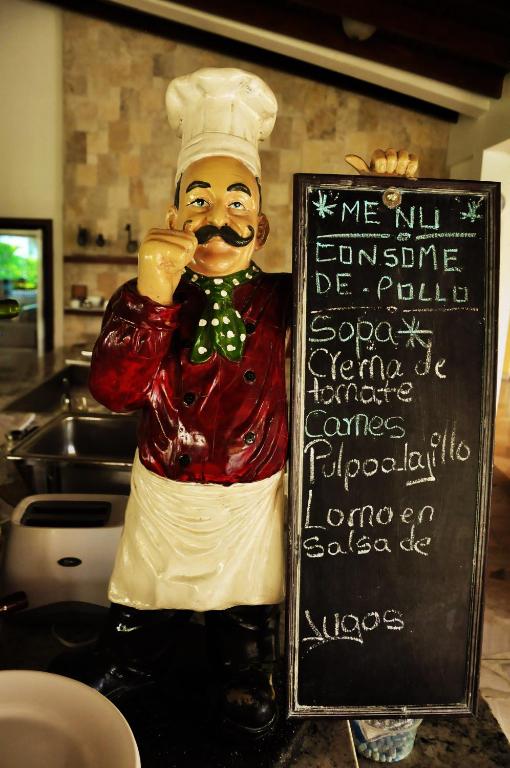 * MENU *
CONSOME
DE-POLLO
Sopa*
Crema de
tomate
Carnes
Pulpoalajillo
Lomo en
salsa de
Jugos